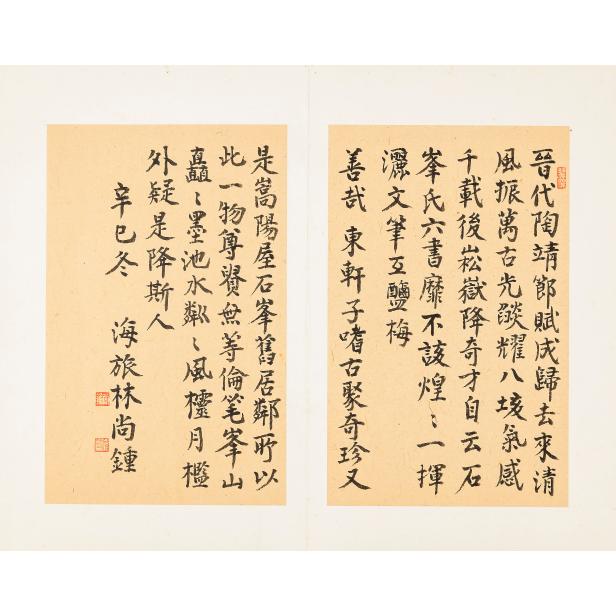 晉代陶靖節賦成歸去來清
風振萬古光燄耀八垓氣感
千載後崧嶽降奇才自云石
峯氏六書靡不該煌〻一揮
灑文筆互鹽梅
善哉東軒子嗜古聚奇珍又
是嵩陽屋石峯舊居鄰所以
此一物尊賢無等倫筆峯山
矗〻墨池水粼〻風櫺月檻
外疑是降斯人
辛巳冬 海旅林尚鍾